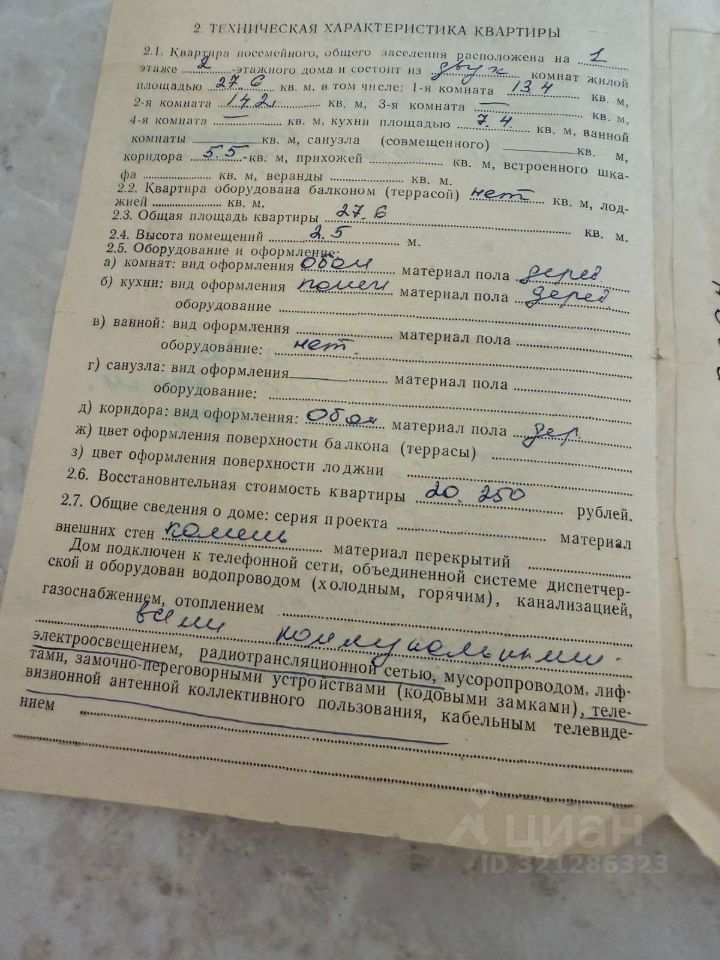 2. ТЕХНИЧЕСКАЯ ХАРАКТЕРИСТИКА КВАРТИРЫ
2.1. Квартира посемейного, общего заселения расположена на 1
этаже 2 -этажного дома и состоит из двух комнат жилой
площадью 27.6 кв. м, в том числе: 1-я комната 13.4 кв. м,
2-я комната 14.2 кв. м, 3-я комната — кв. м,
4-я комната — кв. м, кухни площадью 7.4 кв. м, ванной
комнаты кв. м, санузла (совмещенного) кв. м,
коридора 5.5 кв. м, прихожей кв. м, встроенного шка-
фа кв. м, веранды кв. м.
2.2. Квартира оборудована балконом (террасой) нет кв. м, лод-
жией кв. м.
2.3. Общая площадь квартиры 27.6 кв. м.
2.4. Высота помещений 2.5 м.
2.5. Оборудование и оформление:
а) комнат: вид оформления обои материал пола дерев
б) кухни: вид оформления материал пола дерев
оборудование
в) ванной: вид оформления материал пола
оборудование: нет.
г) санузла: вид оформления материал пола
оборудование:
д) коридора: вид оформления: Обои материал пола дер.
ж) цвет оформления поверхности балкона (террасы)
з) цвет оформления поверхности лоджии
2.6. Восстановительная стоимость квартиры 20.250 рублей.
2.7. Общие сведения о доме: серия проекта материал
внешних стен камень материал перекрытий
Дом подключен к телефонной сети, объединенной системе диспетчер-
ской и оборудован водопроводом (холодным, горячим), канализацией,
газоснабжением, отоплением
всеми коммунальными.
электроосвещением, радиотрансляционной сетью, мусоропроводом, лиф-
тами, замочно-переговорными устройствами (кодовыми замками), теле-
визионной антенной коллективного пользования, кабельным телевиде-
нием
циан
ID 321286323